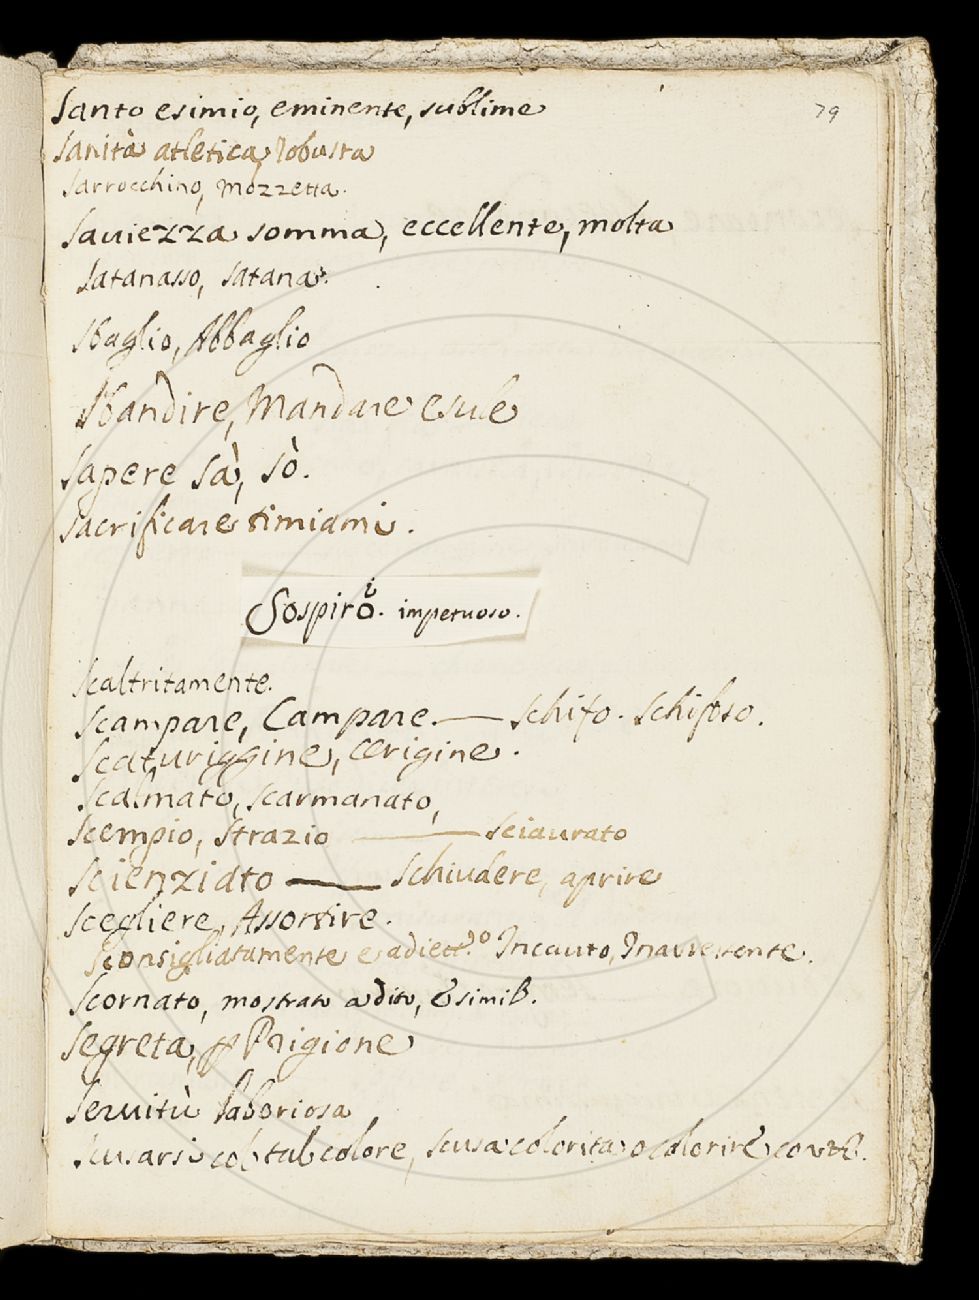 79
Santo esimio, eminente, sublime
Sanità atletica, robusta
Sarrocchino, Mozzetta.
Sauiezza somma, eccellente, molta
Satanasso, Satana.
Sbaglio, Abbaglio
Sbandire, Mandare esule
Sapere sà, sò.
Sacrificare timiami.
Sospirò. impetuoso.
Scaltritamente.
Scampare, Campare. — Schifo. Schifoso.
Scaturiggine, Origine.
Scalmato, scarmanato,
Scempio, Strazio — Sciaurato
Scienziato — Schiudere, aprire
Scegliere, Assortire.
Sconsigliatamente e adiett.o Incauto, Inavvertente.
Scornato, mostrato a dito, e simil.
Segreta, p Prigione
Seruitù laboriosa
Scusarsi col tal colore, scusa colorita o colorire con